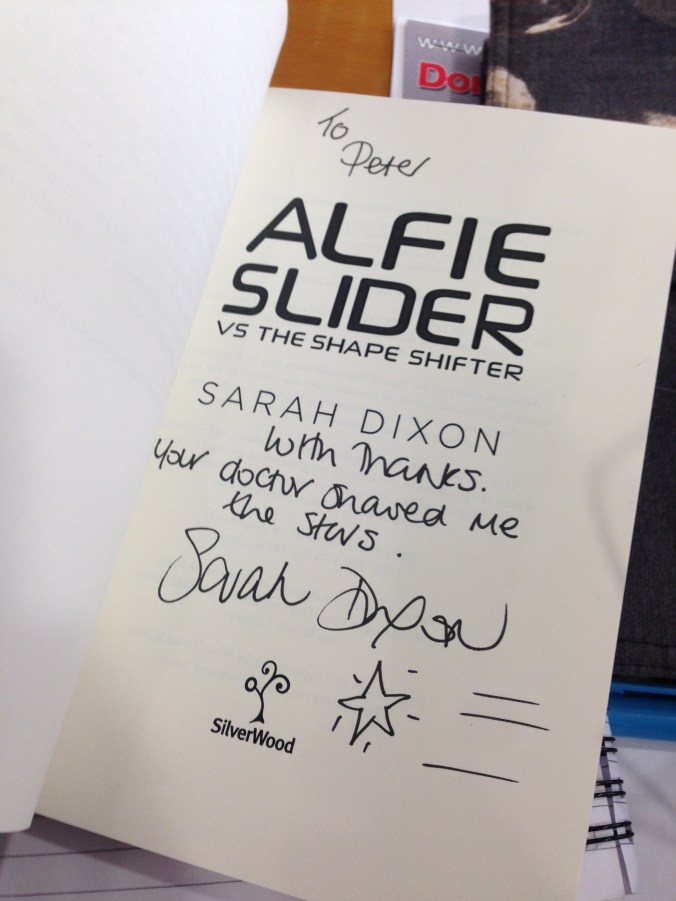 www
Do
To
Peter
ALFIE
SLIDER
VS THE SHAPE SHIFTER
SARAH DIXON
With Thanks.
Your doctor shared me
the stars.
Sarah Dixon
SilverWood